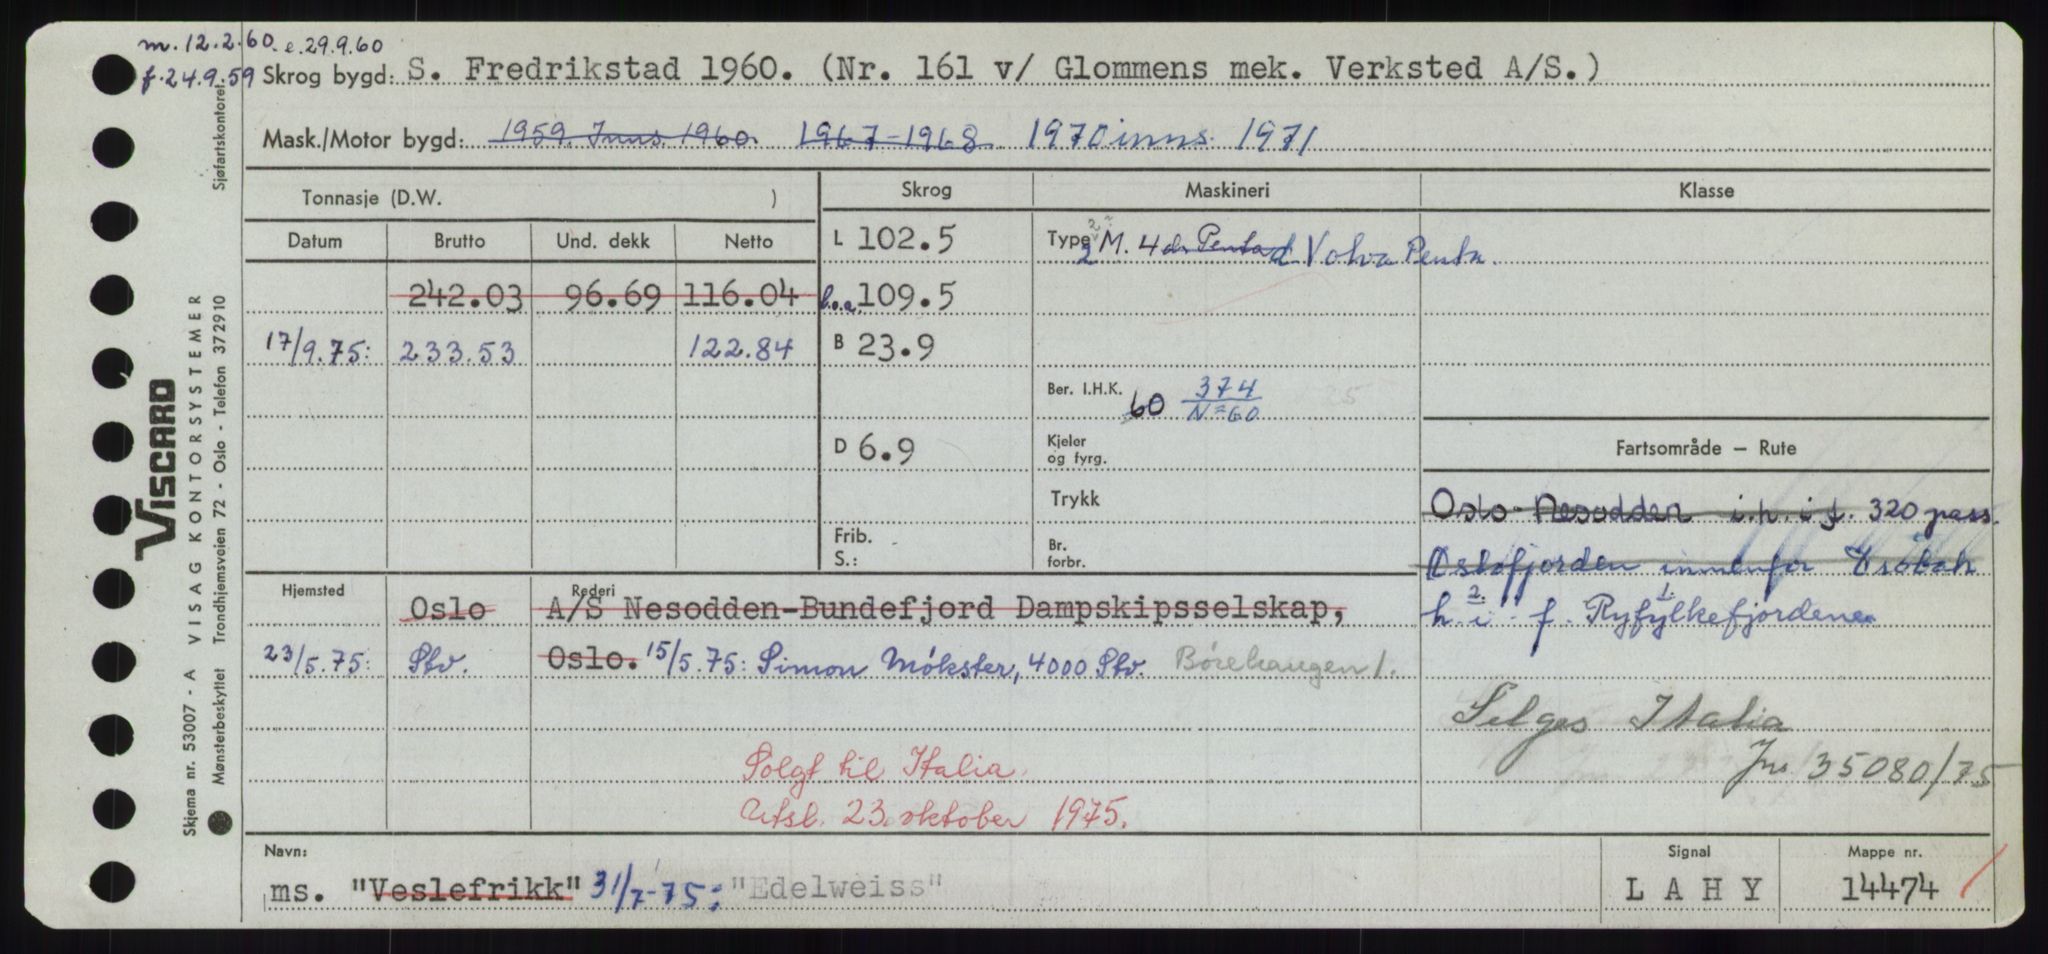 m. 12.2.60. e. 29.9.60
f. 24.9.59 Skrog bygd: S. Fredrikstad 1960. (Nr. 161 v/ Glommens mek. Verksted A/S.)
Mask./Motor bygd: 1959. Inns. 1960. 1967-1968 1970 inns. 1971
Tonnasje (D.W. )
Skrog Maskineri Klasse
Datum Brutto Und. dekk Netto
L 102.5 Type 2 M. 4 d. Penta d Volvo Penta.
242.03 96.69 116.04 l.o.a. 109.5
17/9.75: 233.53 122.84 B 23.9
Ber. I.H.K. 60 374
N=60
D 6.9 Kjeler
og fyrg.
Fartsområde — Rute
Trykk
Oslo-Nesodden i.h.i f. 320 pass.
Frib.
S.:
Br.
forbr.
Oslofjorden innenfor Drøbak
Hjemsted Rederi
Oslo A/S Nesodden-Bundefjord Dampskipsselskap,
h. i. f. Ryfylkefjordene
23/5.75: Stv. Oslo. 15/5.75: Simon Møkster, 4000 Stv. Børehaugen 1.
Selges Italia
Jnr 35080/75
Solgt til Italia.
Utsl. 23. oktober 1975.
Navn: Signal Mappe nr.
ms. "Veslefrikk" 31/7-75: "Edelweiss" LAHY 14474
Skjema nr. 53007 - A VISAG KONTORSYSTEMER Sjøfartskontoret.
Mønsterbeskyttet Trondhjemsveien 72 - Oslo - Telefon 372910
VISCARD